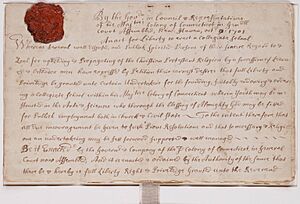 By the Govr. in Council & Representatives
of his Majties Colony of Connecticut in Genrll
Court Assembled, New-Haven, Octr 9: 1701
An Act for Liberty to erect a Collegiate School
Whereas several well disposed, and Publick spirited Persons of their sincere Regard to &
Zeal for upholding & Propagating of the Christian Protestant Religion by a succession of Learned
& Orthodox men have expressed by Petition their earnest desires that full Liberty and
Priviledge be granted unto
a Collegiate School within his Majties Colony of Connecticut wherein Youth may be in-
structed in the Arts & Sciences who through the blessing of Almighty God may be fitted
for Publick employment both in Church & Civil State. To the intent therefore that
all due incouragement be given to such Pious Resolutions and that so necessary & Religious
an undertakeing may be set forward supported & well managed
Be it Enacted by the Governr & Company of the sd Colony of Connecticut in General
Court now Assembled, And it is enacted & ordained by the Authority of the same that
there be & hereby is full Liberty, Right & Priviledge Granted unto the Reverend